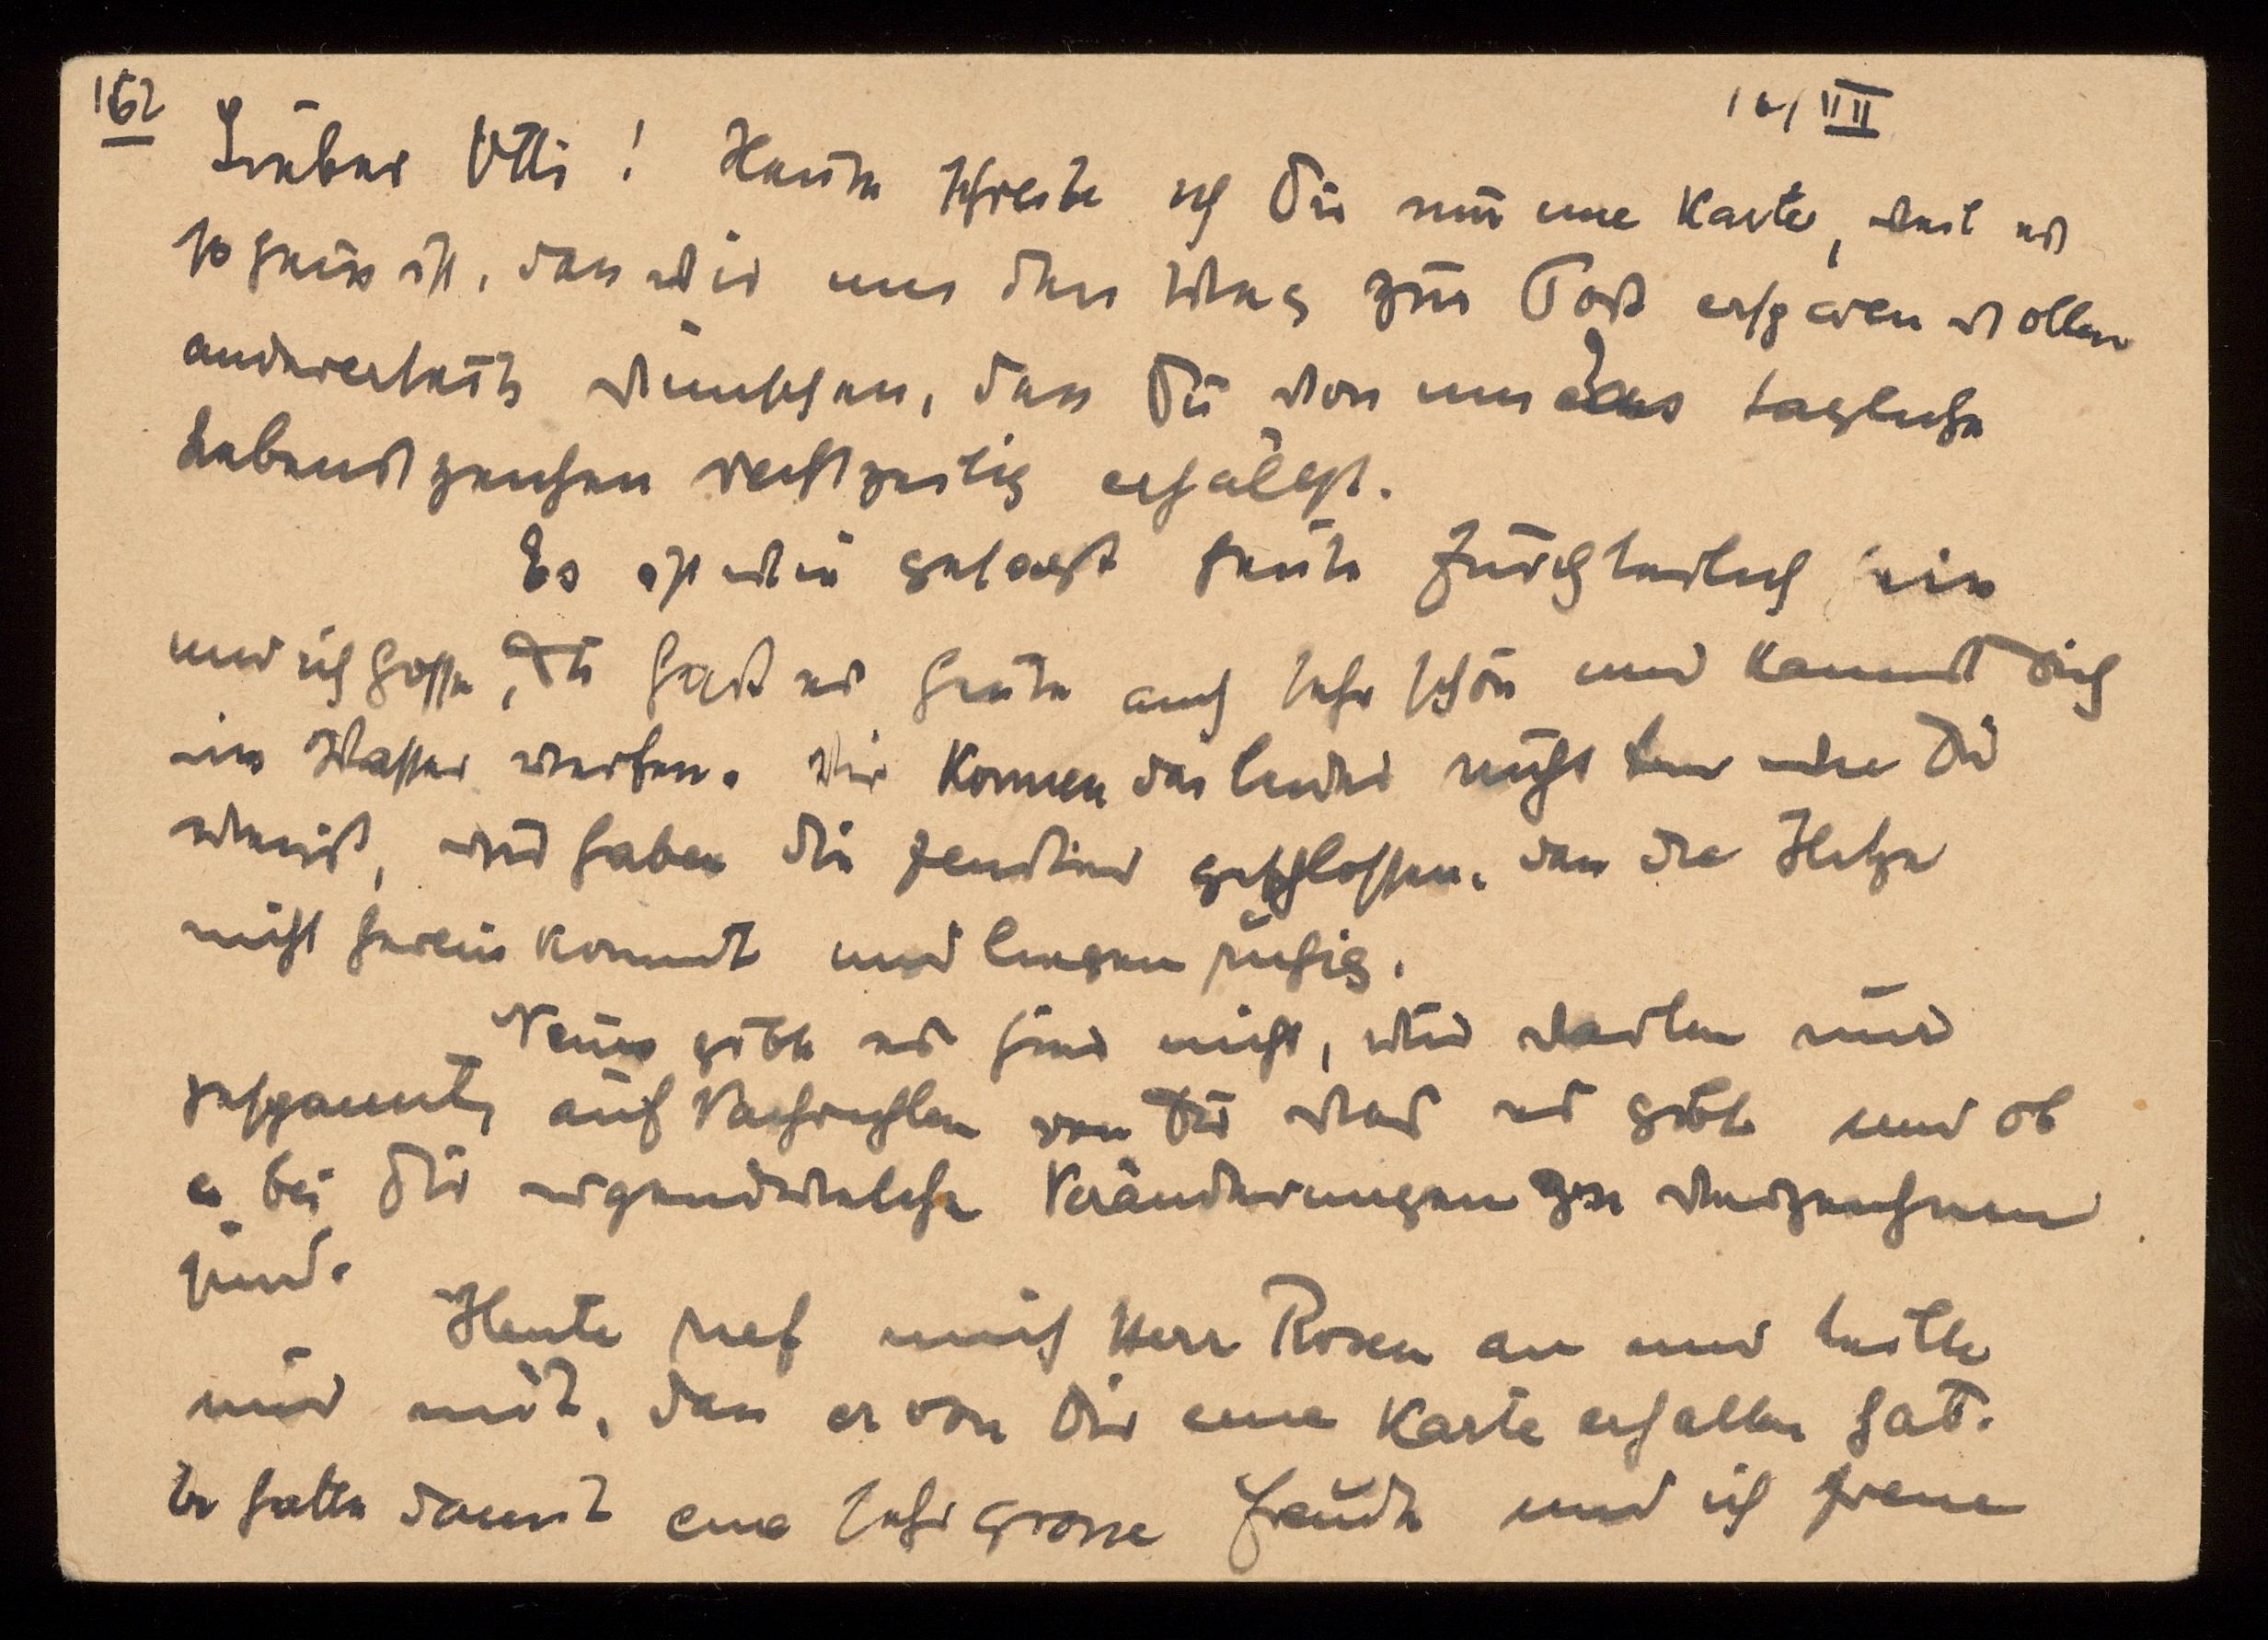 162
10/VII
Lieber Otti! Heute schreibe ich Dir nur eine Karte, weil es
so heiss ist, dass wir uns den Weg zur Post ersparen wollen
andererseits wünschen, dass Du von uns das tägliche
Lebenszeichen rechtzeitig erhältst.
Es ist wie gesagt heute fürchterlich
und ich hoffe, Du hast es heute auch sehr schön und kannst Dich
ins Wasser werfen. Wir können das leider nicht tun wie Du
weisst, wir haben die Fenster geschlossen, dass die Hitze
nicht herein kommt und liegen ruhig.
Neues gibt es hier nicht, wir warten nur
gespannt, auf Nachrichten von Dir was es gibt und ob
es bei Dir irgendwelche Veränderungen zu verzeichnen
sind.
Heute rief mich Herr Rosen an und teilte
mir mit, dass er von Dir eine Karte erhalten hat.
Er hatte damit eine sehr grosse Freude und ich freue